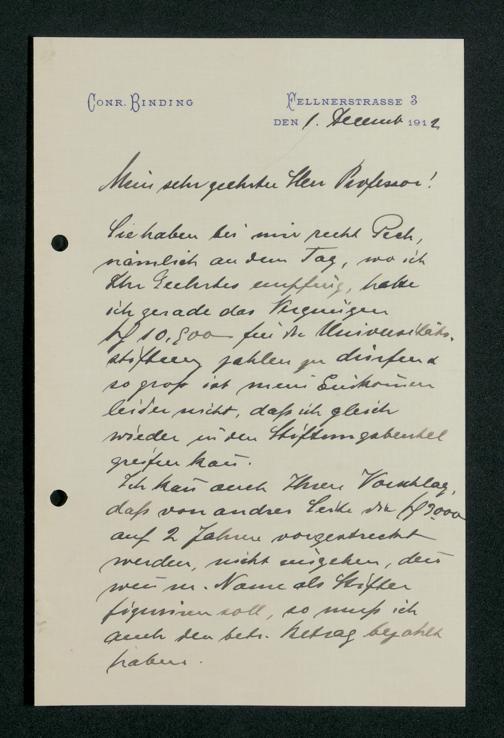 CONR. BINDING
FELLNERSTRASSE 3
DEN 1. Decemb 1912
Mein sehr geehrter Herr Professor!
Sie haben bei mir recht Pech,
nämlich an dem Tag, wo ich
Ihr Geehrtes empfing, hatte
ich gerade das Vergnügen
für die Universitäts-
stiftung zahlen zu dürfen &
so groß ist mein Einkommen
leider nicht, daß ich gleich
wieder in den Stiftungsbeutel
greifen kann.
Ich kann auch Ihren Vorschlag,
daß von andrer Seite die
auf 2 Jahre vorgestreckt
werden, nicht eingehen, denn
wenn m. Name als Stifter
figuriren soll, so muß ich
auch den betr. Betrag bezahlt
haben.